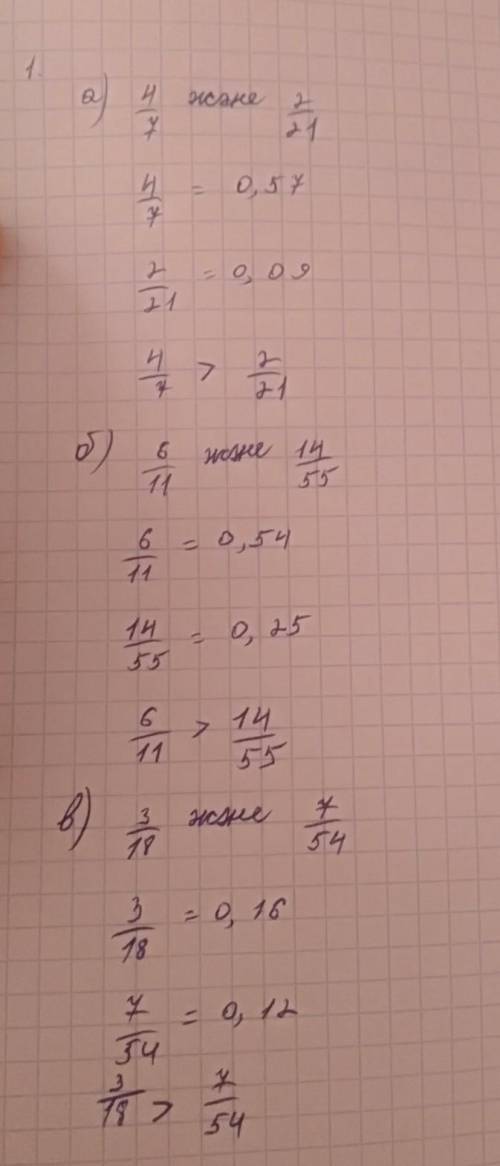 1.
а) 4/7 және 2/21
4/7 = 0,57
2/21 = 0,09
4/7 > 2/21
б) 6/11 және 14/55
6/11 = 0,54
14/55 = 0,25
6/11 > 14/55
в) 3/18 және 7/54
3/18 = 0,16
7/54 = 0,12
3/18 > 7/54